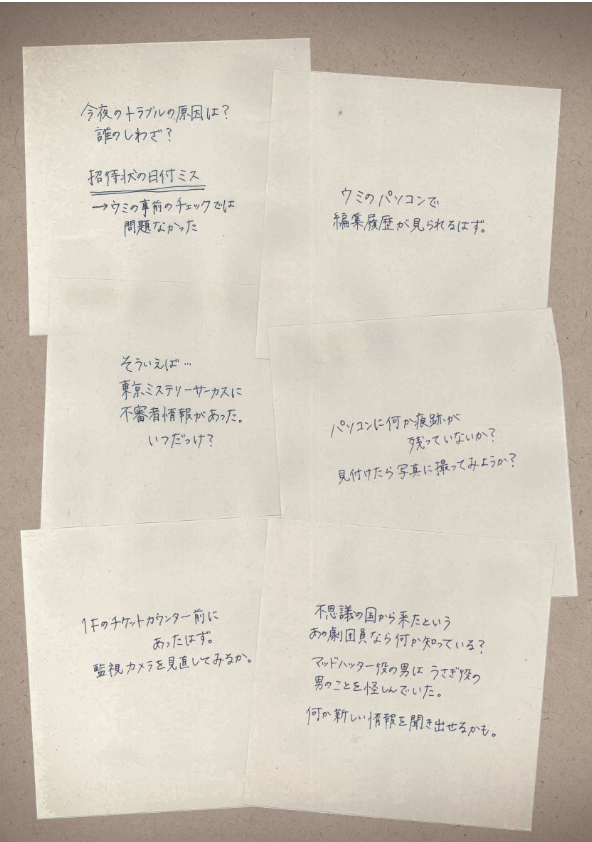 今夜のトラブルの原因は？
誰のしわざ？
招待状の日付ミス
→ウミの事前のチェックでは
問題なかった
ウミのパソコンで
編集履歴が見られるはず。
そういえば…
東京ミステリーサーカスに
不審者情報があった。
いつだっけ？
パソコンに何か痕跡が
残っていないか？
見付けたら写真に撮ってみようか？
1Fのチケットカウンター前に
あったはず。
監視カメラを見直してみるか。
不思議の国から来たという
あの劇団員なら何か知っている？
マッドハッター役の男は うさぎ役の
男のことを怪しんでいた。
何か新しい情報を聞き出せるかも。